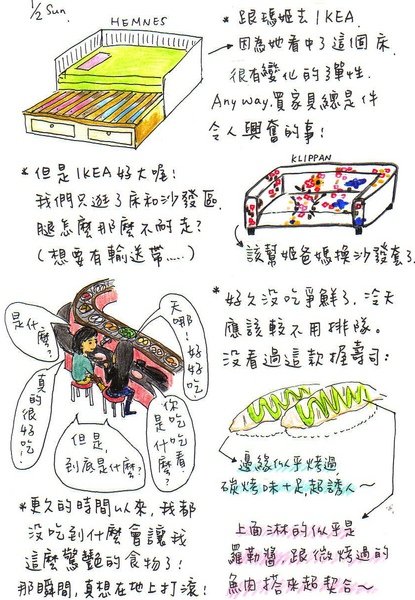 1/2 Sun
HEMNES
* 跟瑪姬去IKEA.
因為她看中了這個床.
很有變化的彈性.
Any way. 買家具總是件
令人興奮的事!
* 但是IKEA好大喔!
我們只逛了床和沙發區.
腿怎麼那麼不耐走?
(想要有輸送帶.....)
KLIPPAN
該幫姬爸媽換沙發套了.
是什麼?
天哪!好好吃
真的很好吃!
你是吃什麼看?
但是,
到底是什麼?
* 好久沒吃爭鮮了. 冷天
應該較不用排隊。
沒看過這款握壽司:
邊緣似乎烤過.
碳烤味十足,超誘人~
上面淋的似乎是
羅勒醬,跟微烤過的
魚肉搭來超契合~
* 更久的時間以來,我都
沒吃到什麼會讓我
這麼驚艷的食物了!
那瞬間,真想在地上打滾!